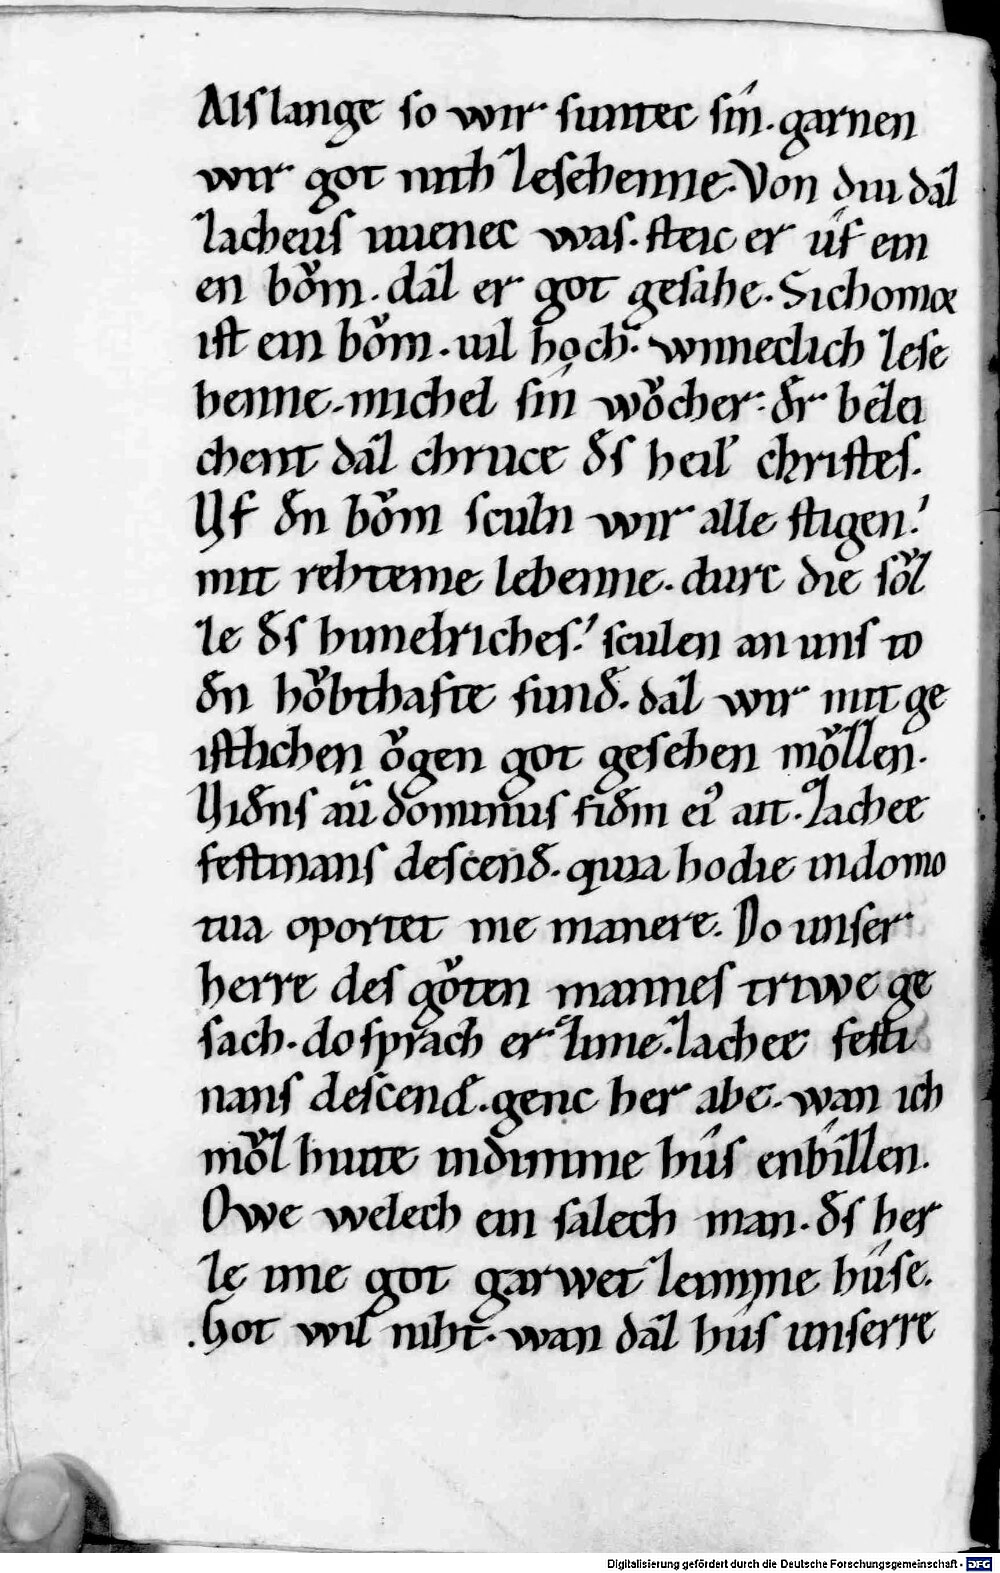 Alſlange ſo wir ſuntec ſín. garnen
wir got nith zeſehenne. Von diu dáz
zacheuſ nuenec was. ſteic er úf ein
en boͮm. dáz er got geſahe. Sichomoꝛ
iſt ein boͮm. uil hoch. wnneclich zeſe
henne. michel ſín woͮcher. đr bezei
chent dáz chruce đſ heilꝰ chriſteſ.
Uf đn boͮm ſculn wir alle ſtigen.
mit rehteme lebenne. durc die ſoͮl
le đſ himelricheſ. ſculen an unſ to
đn hoͮbthafte ſund̄. dáz wir mit ge
iſtlichen oͮgen got geſehen moͮzzen.
Uiđnſ aū dominuſ fiđm eiꝰ ait. Zachee
feſtinanſ deſcend̄. quia hodie indomo
tua oportet me manere. Do unſer
herre deſ goͮten manneſ triwe ge
ſach. do ſprach er zime. zachee feſti
nanſ deſcend̄. genc her abe. wan ich
moͮz hiute indinme húſ enbizzen.
Owe welech ein ſalech man. đſ her
ze ime got garwet zeinime húſe.
Got wil niht. wan dáz húſ unſerre
Digitalisierung gefördert durch die Deutsche Forschungsgemeinschaft - DFG